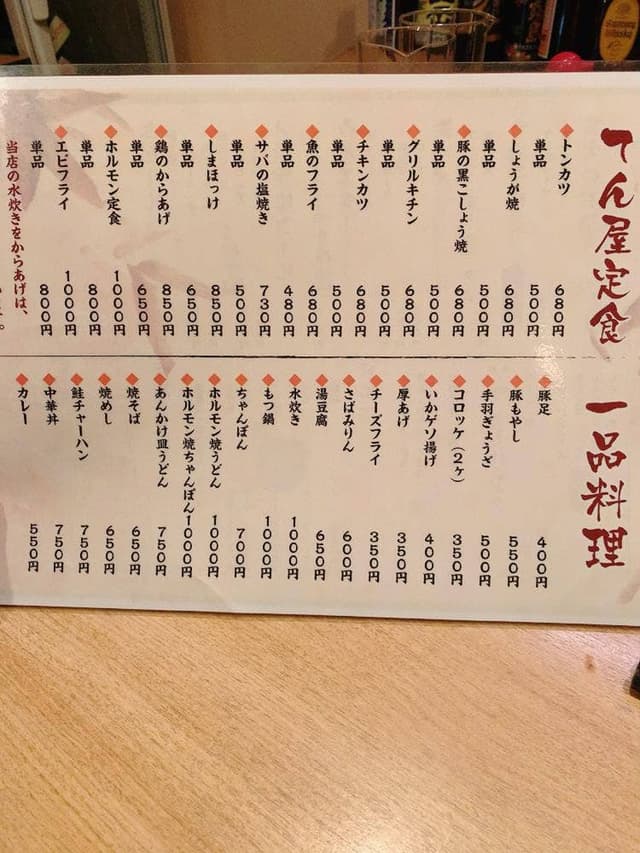 てん屋定食
◆トンカツ 680円
単品 500円
◆しょうが焼 680円
単品 500円
◆豚の黒こしょう焼 680円
単品 500円
◆グリルキチン 680円
単品 500円
◆チキンカツ 680円
単品 500円
◆魚のフライ 680円
単品 480円
◆サバの塩焼き 730円
単品 500円
◆しまほっけ 850円
単品 650円
◆鶏のからあげ 850円
単品 650円
◆ホルモン定食 1000円
単品 800円
◆エビフライ 1000円
単品 800円
当店の水炊きをからあげは、
一品料理
◆豚足 400円
◆豚もやし 550円
◆手羽ぎょうざ 500円
◆コロッケ（２ヶ） 350円
◆いかゲソ揚げ 400円
◆厚あげ 350円
◆チーズフライ 350円
◆さばみりん 600円
◆湯豆腐 650円
◆水炊き 1000円
◆もつ鍋 1000円
◆ちゃんぽん 700円
◆ホルモン焼うどん 1000円
◆ホルモン焼ちゃんぽん 1000円
◆あんかけ皿うどん 750円
◆焼そば 650円
◆焼めし 650円
◆鮭チャーハン 750円
◆中華丼 750円
◆カレー 550円